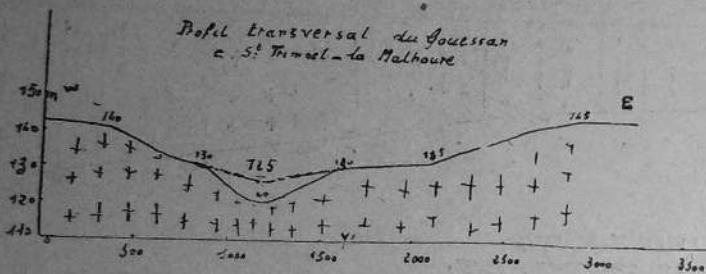 Profil transversal du Gouessan
e St Trimoel - la Malhoure
150 m W
E
140
140
145
130
130
125
130
135
120
110
500
1000
1500
2000
2500
3000
3500